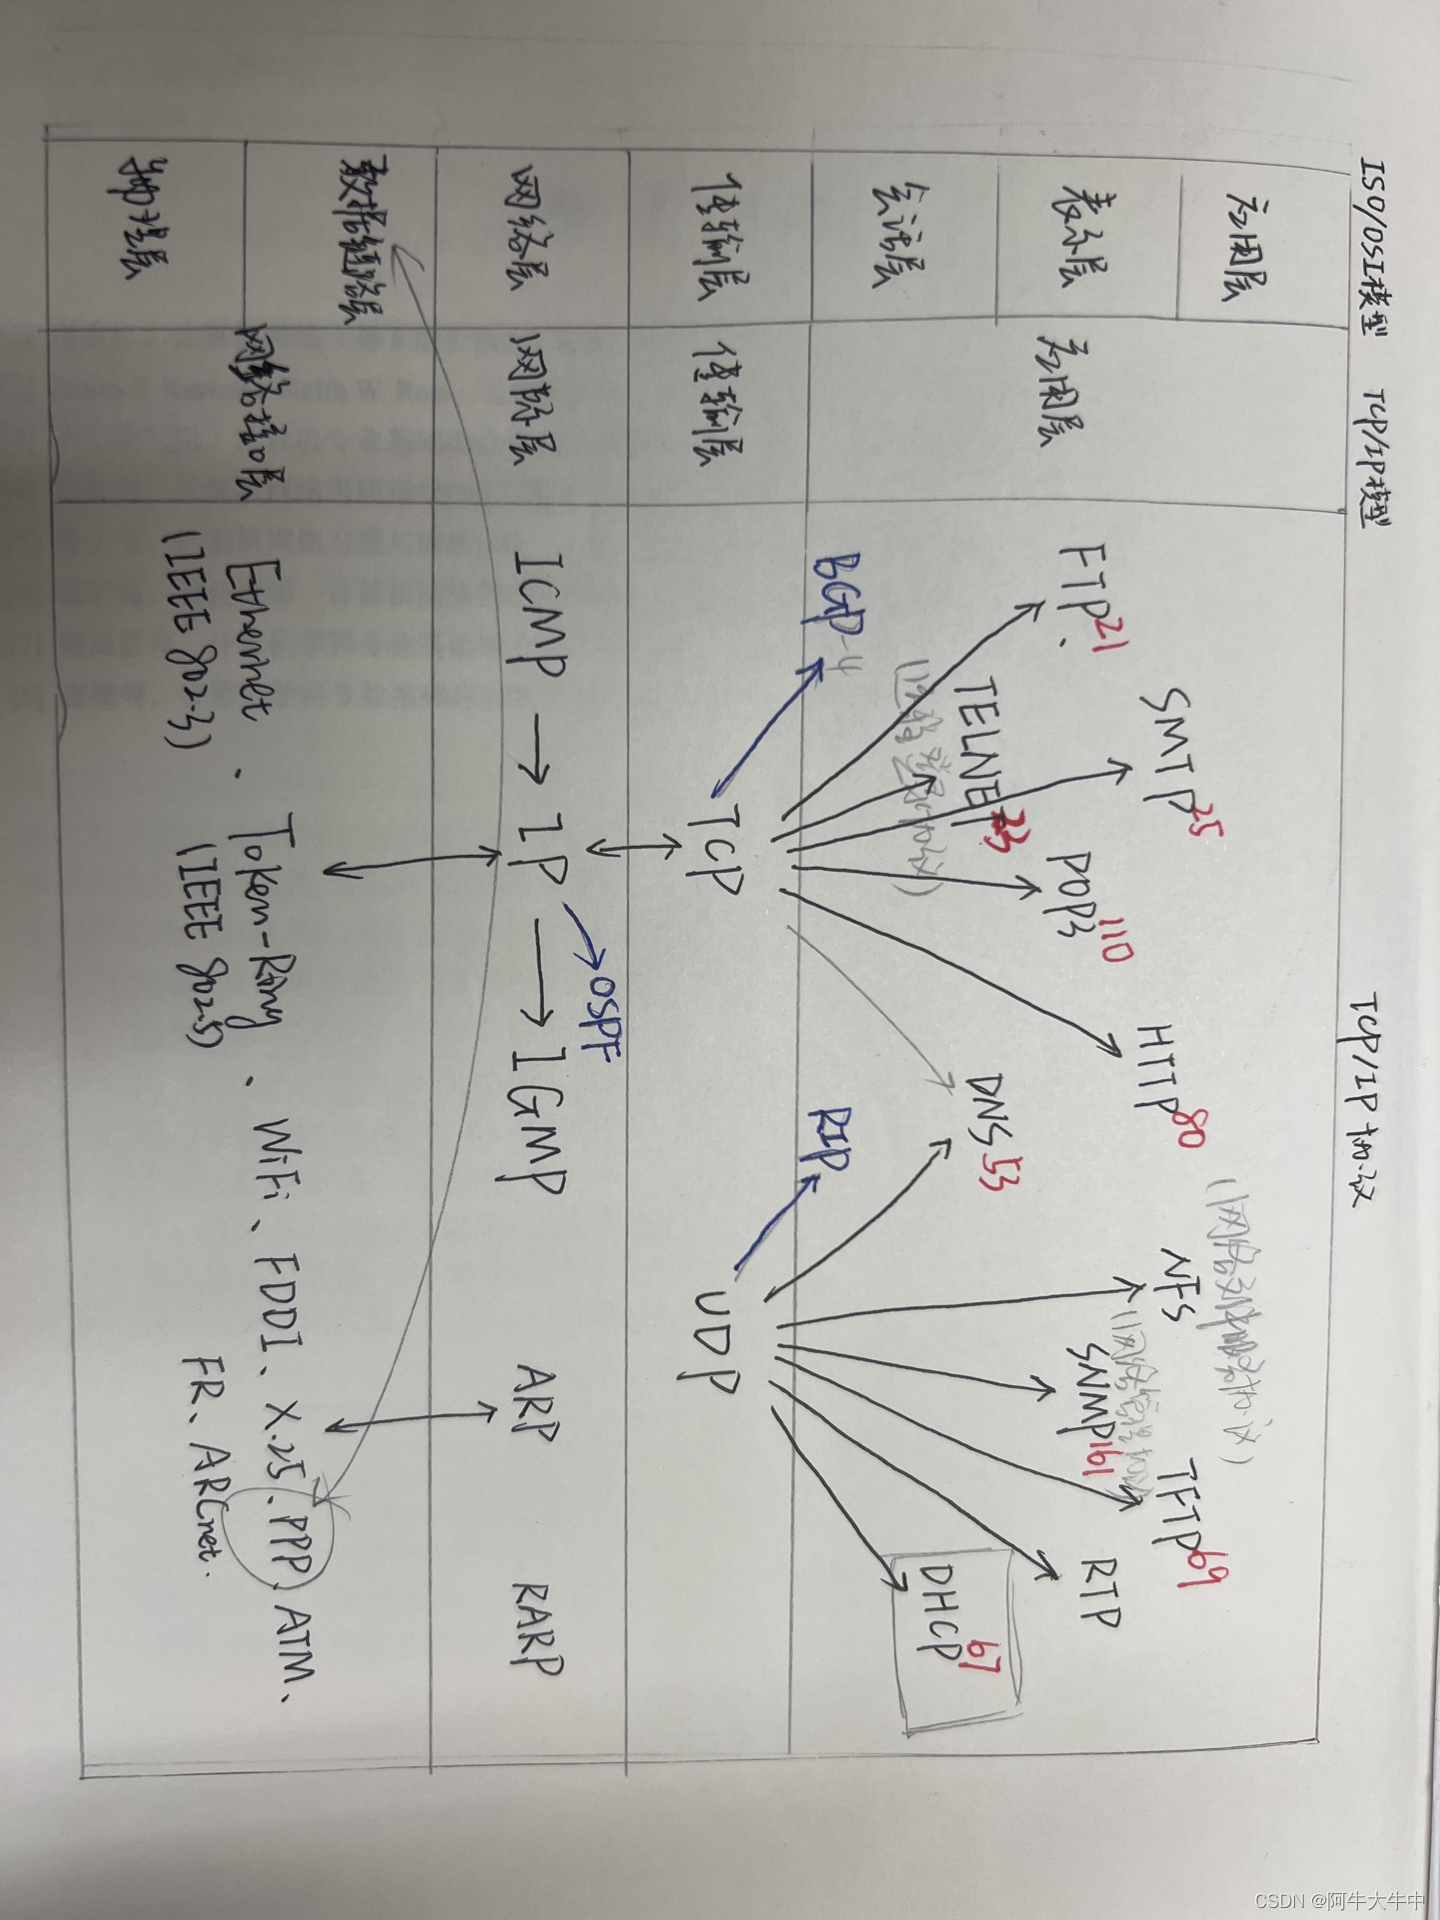 ISO/OSI模型 TCP/IP模型 TCP/IP协议
应用层
表示层
会话层
应用层
(网络文件服务协议)
SMTP25 HTTP80 NFS TFTP69
(网络管理协议)
FTP21 POP3 110 SNMP161 RTP
TELNET23 DNS53 DHCP67
(远程登录协议)
BGP-4 RIP
传输层 传输层 TCP UDP
OSPF
网络层 网际层 ICMP IP IGMP ARP RARP
数据链路层
物理层
网络接口层
Ethernet、Token-Ring、WiFi、FDDI、X.25、PPP、ATM、
(IEEE 802.3) (IEEE 802.5) FR、ARCnet.
CSDN @阿牛大牛中